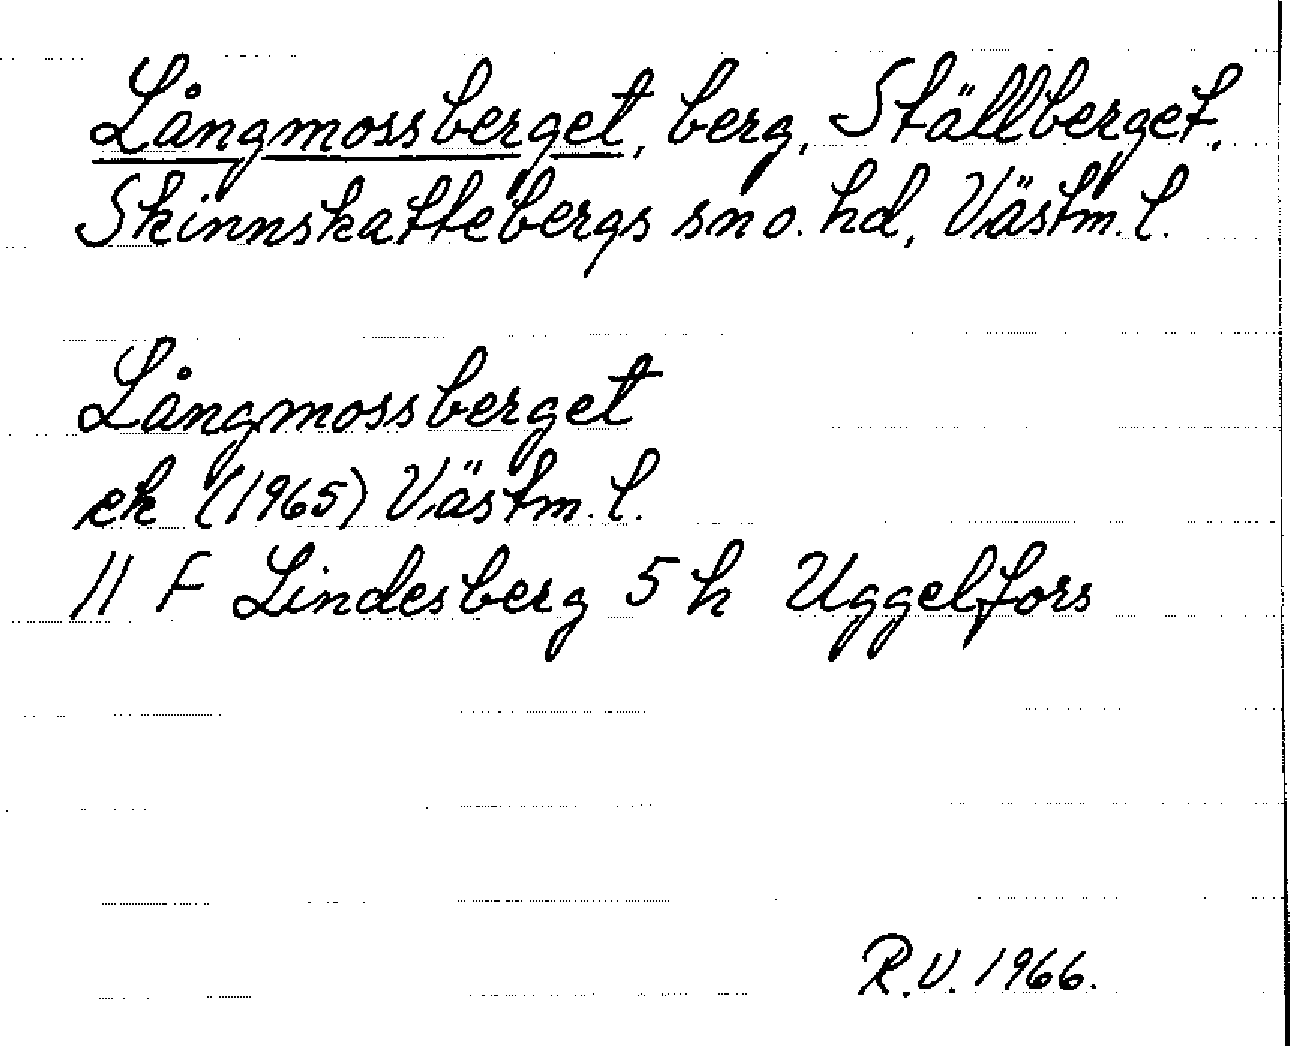 Långmossberget, berg, Ställberget,
Skinnskattebergs sn o. hd, Västm. l.
Långmossberget
ek (1965) Västm. l.
11 F Lindesberg 5 h Uggelfors
R.V. 1966.